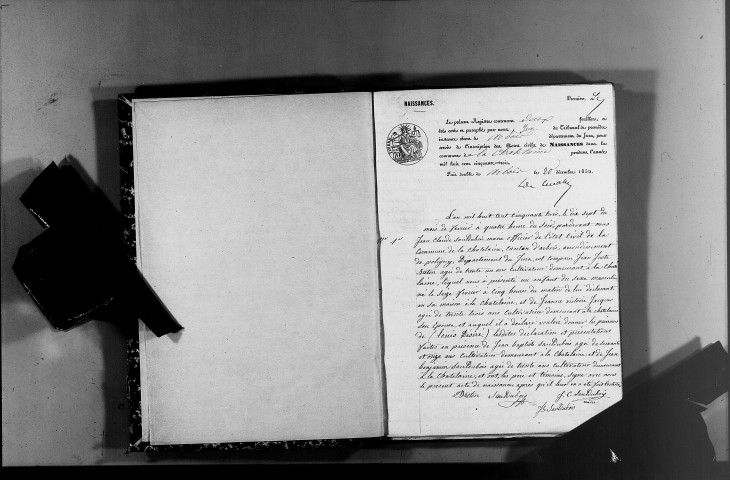 NAISSANCES.
Premier
Le présent Registre contenant feuillets, a
été coté et paraphé par nous du Tribunal de première
instance séant à département du Jura, pour
servir de l'inscription des Actes civils de NAISSANCES dans la
commune de la Chatelaine pendant l'année
mil huit cent cinquante-trois.
le 20 décembre 1852.
L'an mil huit cent cinquante trois, le dix sept du
mois de février à quatre heures du soir, pardevant nous
Jean Claude maire officier de l'état civil de la
Commune de la Chatelaine, canton d'arbois, arrondissement
N° 1er
de poligny, Département du Jura, est comparu Jean
agé de trente un ans cultivateur demeurant à la Chate
laine, lequel nous a présenté un enfant du sexe masculin
né le seize février à cinq heures du matin de lui déclarant
en sa maison à la chatelaine, et de Jeanne victoire
agée de trente trois ans cultivatrice demeurant à la chatelaine
son épouse, et auquel il a déclaré vouloir donner les prénoms
de (Louis ) lesdites déclaration et présentation
faites en présence de Jean baptiste agé de
et ans cultivateur demeurant à la Chatelaine et de Jean
benjamin agé de trente ans cultivateur demeurant
à la Chatelaine, et ont, les père et témoins, signé avec nous
le présent acte de naissance après qu'il leur en a été fait lecture